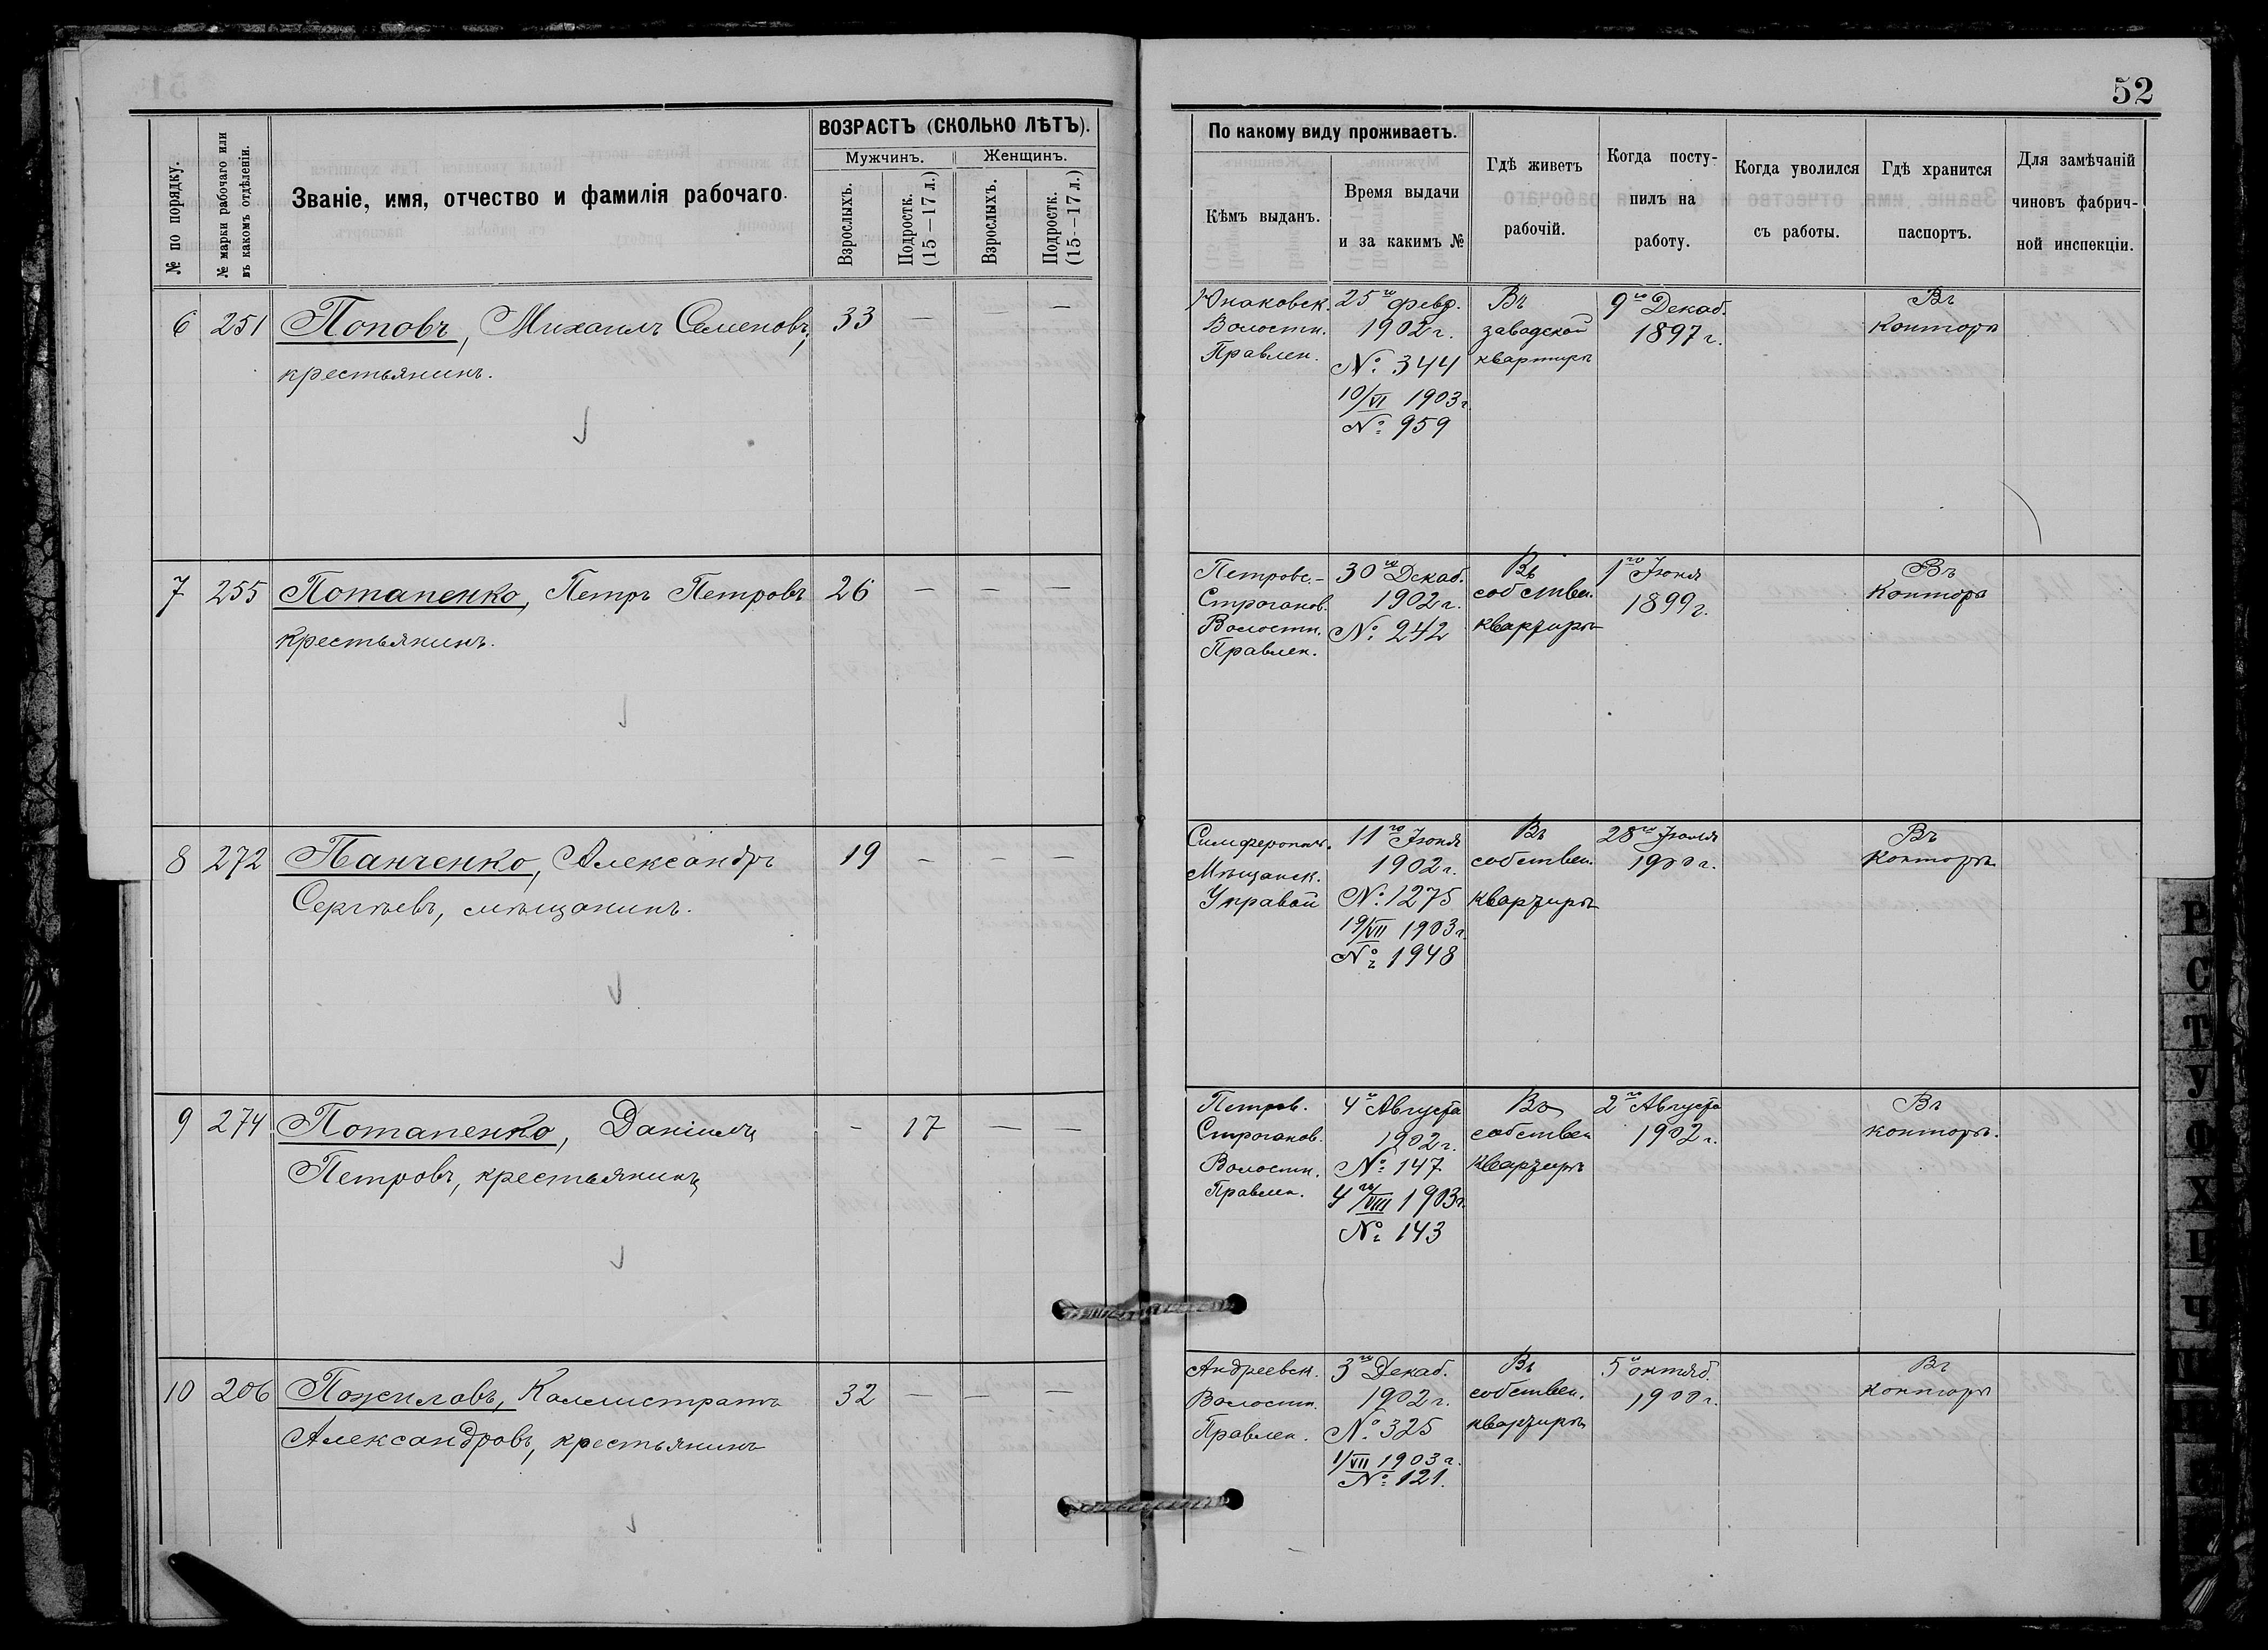 52
ВОЗРАСТЪ (СКОЛЬКО ЛѢТЪ).
Мужчинъ.
Женщинъ.
№ по порядку.
№ марки рабочаго или
въ какомъ отдѣленіи.
Званіе, имя, отчество и фамилія рабочаго.
Взрослыхъ.
Подростк.
(15—17 л.)
Взрослыхъ.
Подростк.
(15—17 л.)
По какому виду проживаетъ.
Кѣмъ выданъ.
Время выдачи
и за какимъ №
Гдѣ живетъ
рабочій.
Когда посту-
пилъ на
работу.
Когда уволился
съ работы.
Гдѣ хранится
паспортъ.
Для замѣчаній
чиновъ фабрич-
ной инспекціи.
6 251 Поповъ, Михаилъ Семеновъ, 33 — — —
крестьянинъ.
Юнаковск.
Волостн.
Правлен.
25го февр.
1902 г.
№ 344
10/VI 1903 г.
№ 959
Въ
заводской
квартирѣ
9го Декаб.
1897 г.
Въ
Конторѣ
7 255 Потапенко, Петръ Петровъ 26 — — —
крестьянинъ.
Петровс.-
Строганов.
Волостн.
Правлен.
30го Декаб.
1902 г.
№ 242
Въ
собствен.
квартирѣ
1го Іюня
1899 г.
Въ
Конторѣ
8 272 Панченко, Александръ 19 — — —
Сергѣевъ, мѣщанинъ.
Симферопол.
Мѣщанск.
Управой
11го Іюня
1902 г.
№ 1275
19/VII 1903 г.
№ 1948
Въ
собствен.
квартирѣ
28го Іюля
1900 г.
Въ
Конторѣ
9 274 Потапенко, Даніилъ — 17 — —
Петровъ, крестьянинъ
Петров.
Строганов.
Волостн.
Правлен.
4го Августа
1902 г.
№ 147
4го/VIII 1903 г.
№ 143
Въ
собствен
квартирѣ
2го Августа
1902 г.
Въ
конторѣ.
10 206 Пожиловъ, Каллистратъ 32 — — —
Александровъ, крестьянинъ
Андреевск.
Волостн.
Правлен.
3го Декаб.
1902 г.
№ 325
1/VII 1903 г.
№ 121.
Въ
собствен.
квартирѣ
5го октяб.
1900 г.
Въ
конторѣ
Р
С
Т
У
Ф
Х
Ц
Ч